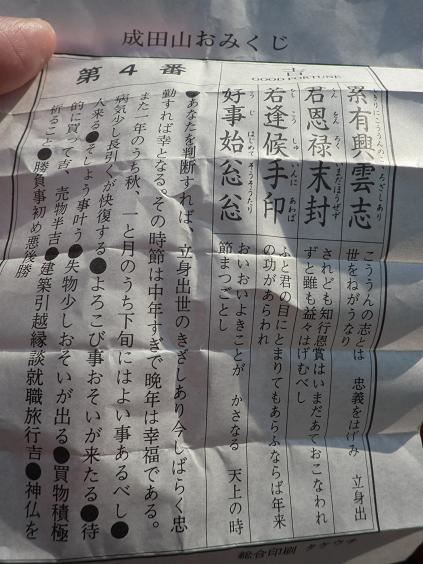 成田山おみくじ
第4番
吉
GOOD FORTUNE
有興雲志
君恩禄未封
若逢候手印
好事始忩忩
こううんの志とは 忠義をはげみ 立身出
世をねがうなり
されども知行恩賞はいまだあておこなわれ
ずと雖も益々はげむべし
ふと君の目にとまりてもあらふならば年来
の功があらわれ
おいおいよきことが かさなる 天上の時
節まつごとし
●あなたを判断すれば、立身出世のきざしあり今しばらく忠
勤すれば幸となる。その時節は中年すぎで晩年は幸福である。
また一年のうち秋、一と月のうち下旬にはよい事あるべし●
病気少し長引くが快復する●よろこび事おそいが来たる●待
人来る●そしよう事叶う●失物少しおそいが出る●買物積極
的に買って吉、売物半吉●建築引越縁談就職旅行吉●神仏を
祈ること●勝負事初め悪後勝
総合印刷 タケウチ